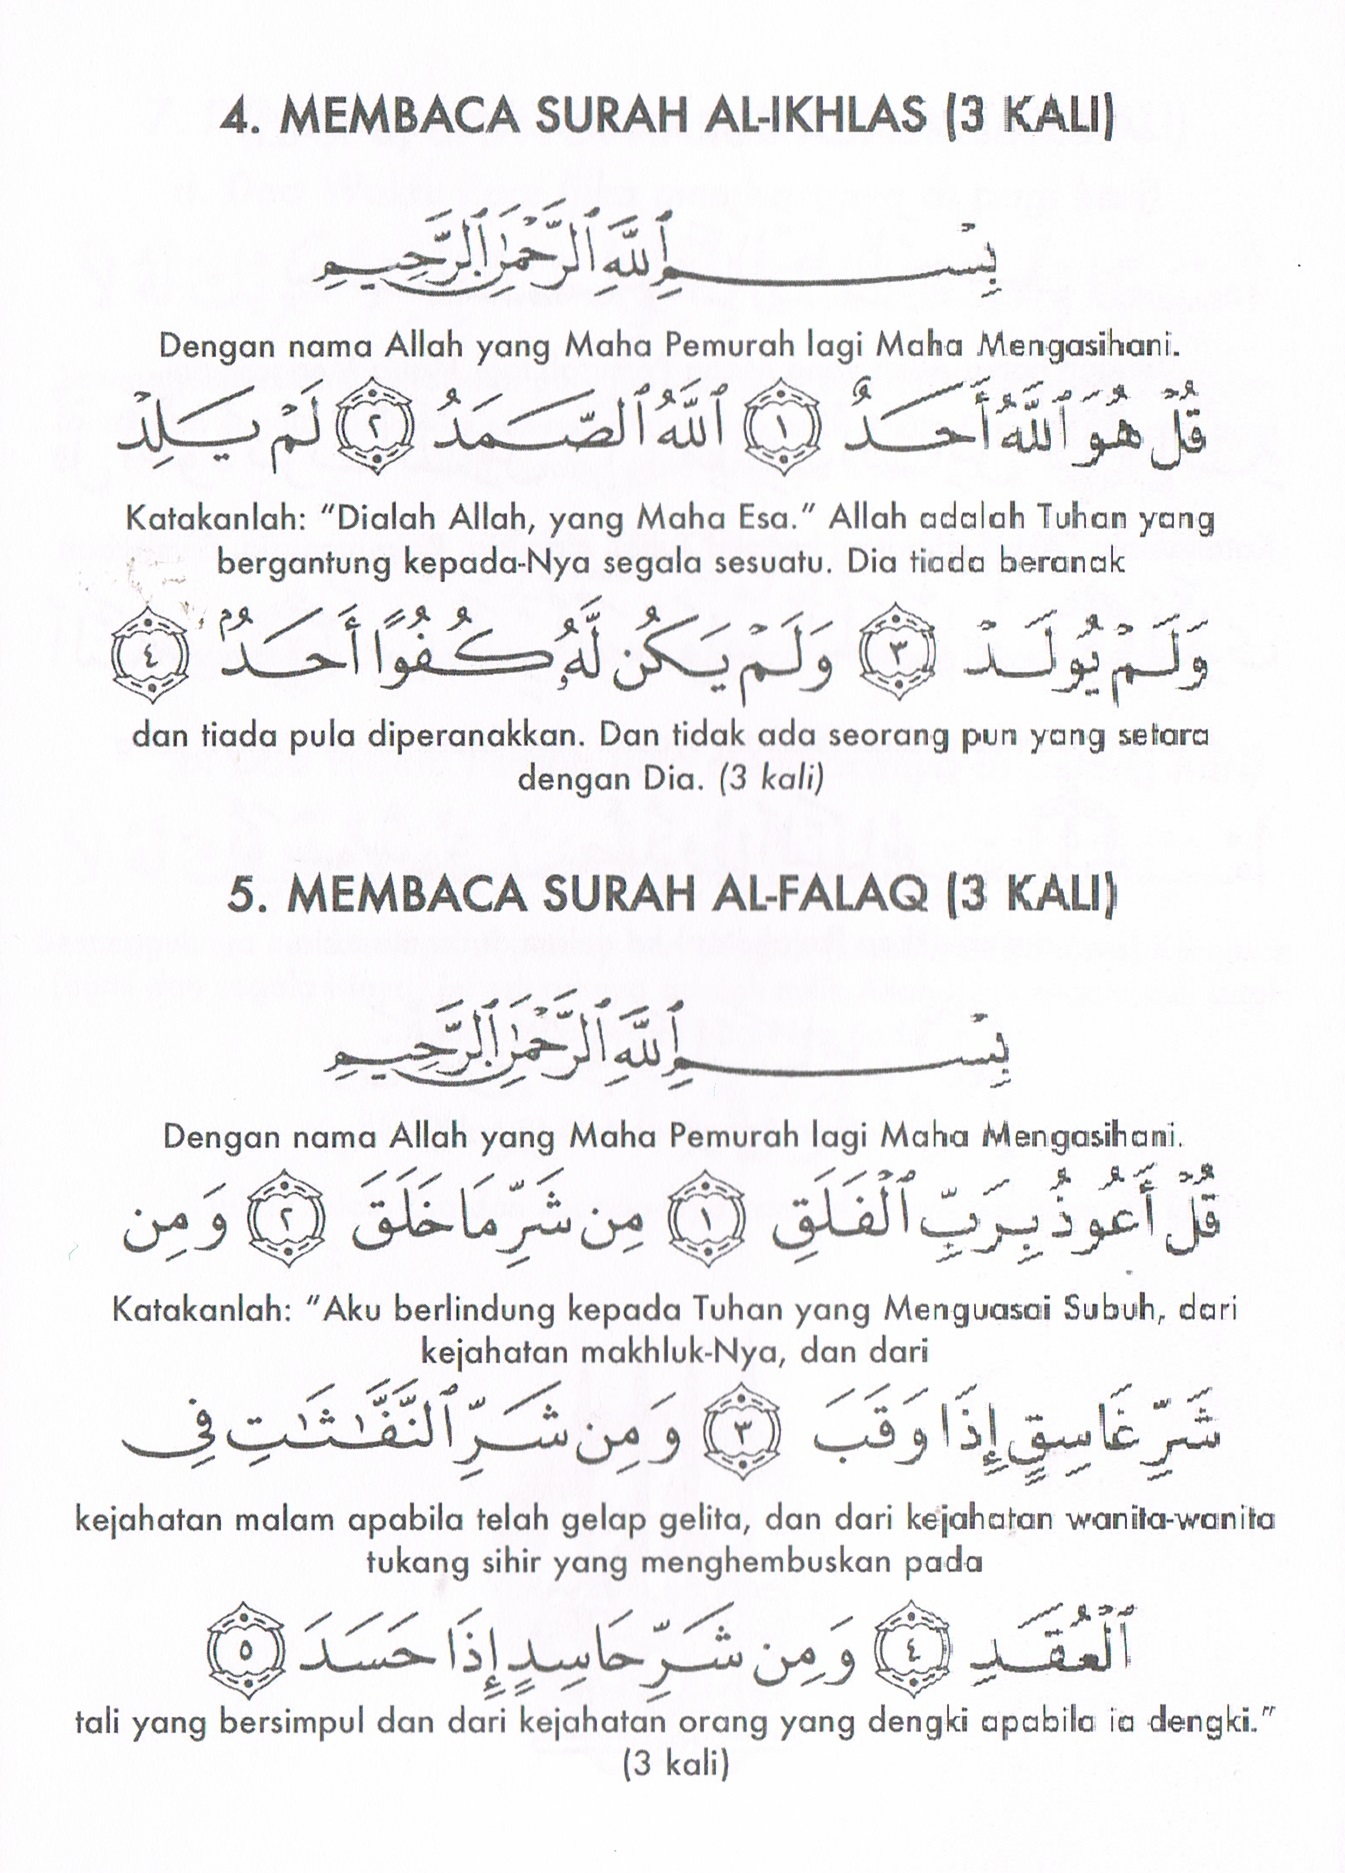 4. MEMBACA SURAH AL-IKHLAS (3 KALI)
بِسْمِ ٱللَّهِ ٱلرَّحْمَٰنِ ٱلرَّحِيمِ
Dengan nama Allah yang Maha Pemurah lagi Maha Mengasihani.
قُلْ هُوَ ٱللَّهُ أَحَدٌ ١ ٱللَّهُ ٱلصَّمَدُ ٢ لَمْ يَلِدْ
Katakanlah: “Dialah Allah, yang Maha Esa.” Allah adalah Tuhan yang
bergantung kepada-Nya segala sesuatu. Dia tiada beranak
وَلَمْ يُولَدْ ٣ وَلَمْ يَكُن لَّهُۥ كُفُوًا أَحَدٌۢ ٤
dan tiada pula diperanakkan. Dan tidak ada seorang pun yang setara
dengan Dia. (3 kali)
5. MEMBACA SURAH AL-FALAQ (3 KALI)
بِسْمِ ٱللَّهِ ٱلرَّحْمَٰنِ ٱلرَّحِيمِ
Dengan nama Allah yang Maha Pemurah lagi Maha Mengasihani.
قُلْ أَعُوذُ بِرَبِّ ٱلْفَلَقِ ١ مِن شَرِّ مَا خَلَقَ ٢ وَمِن
Katakanlah: “Aku berlindung kepada Tuhan yang Menguasai Subuh, dari
kejahatan makhluk-Nya, dan dari
شَرِّ غَاسِقٍ إِذَا وَقَبَ ٣ وَمِن شَرِّ ٱلنَّفَّٰثَٰتِ فِى
kejahatan malam apabila telah gelap gelita, dan dari kejahatan wanita-wanita
tukang sihir yang menghembuskan pada
ٱلْعُقَدِ ٤ وَمِن شَرِّ حَاسِدٍ إِذَا حَسَدَ ٥
tali yang bersimpul dan dari kejahatan orang yang dengki apabila ia dengki.”
(3 kali)